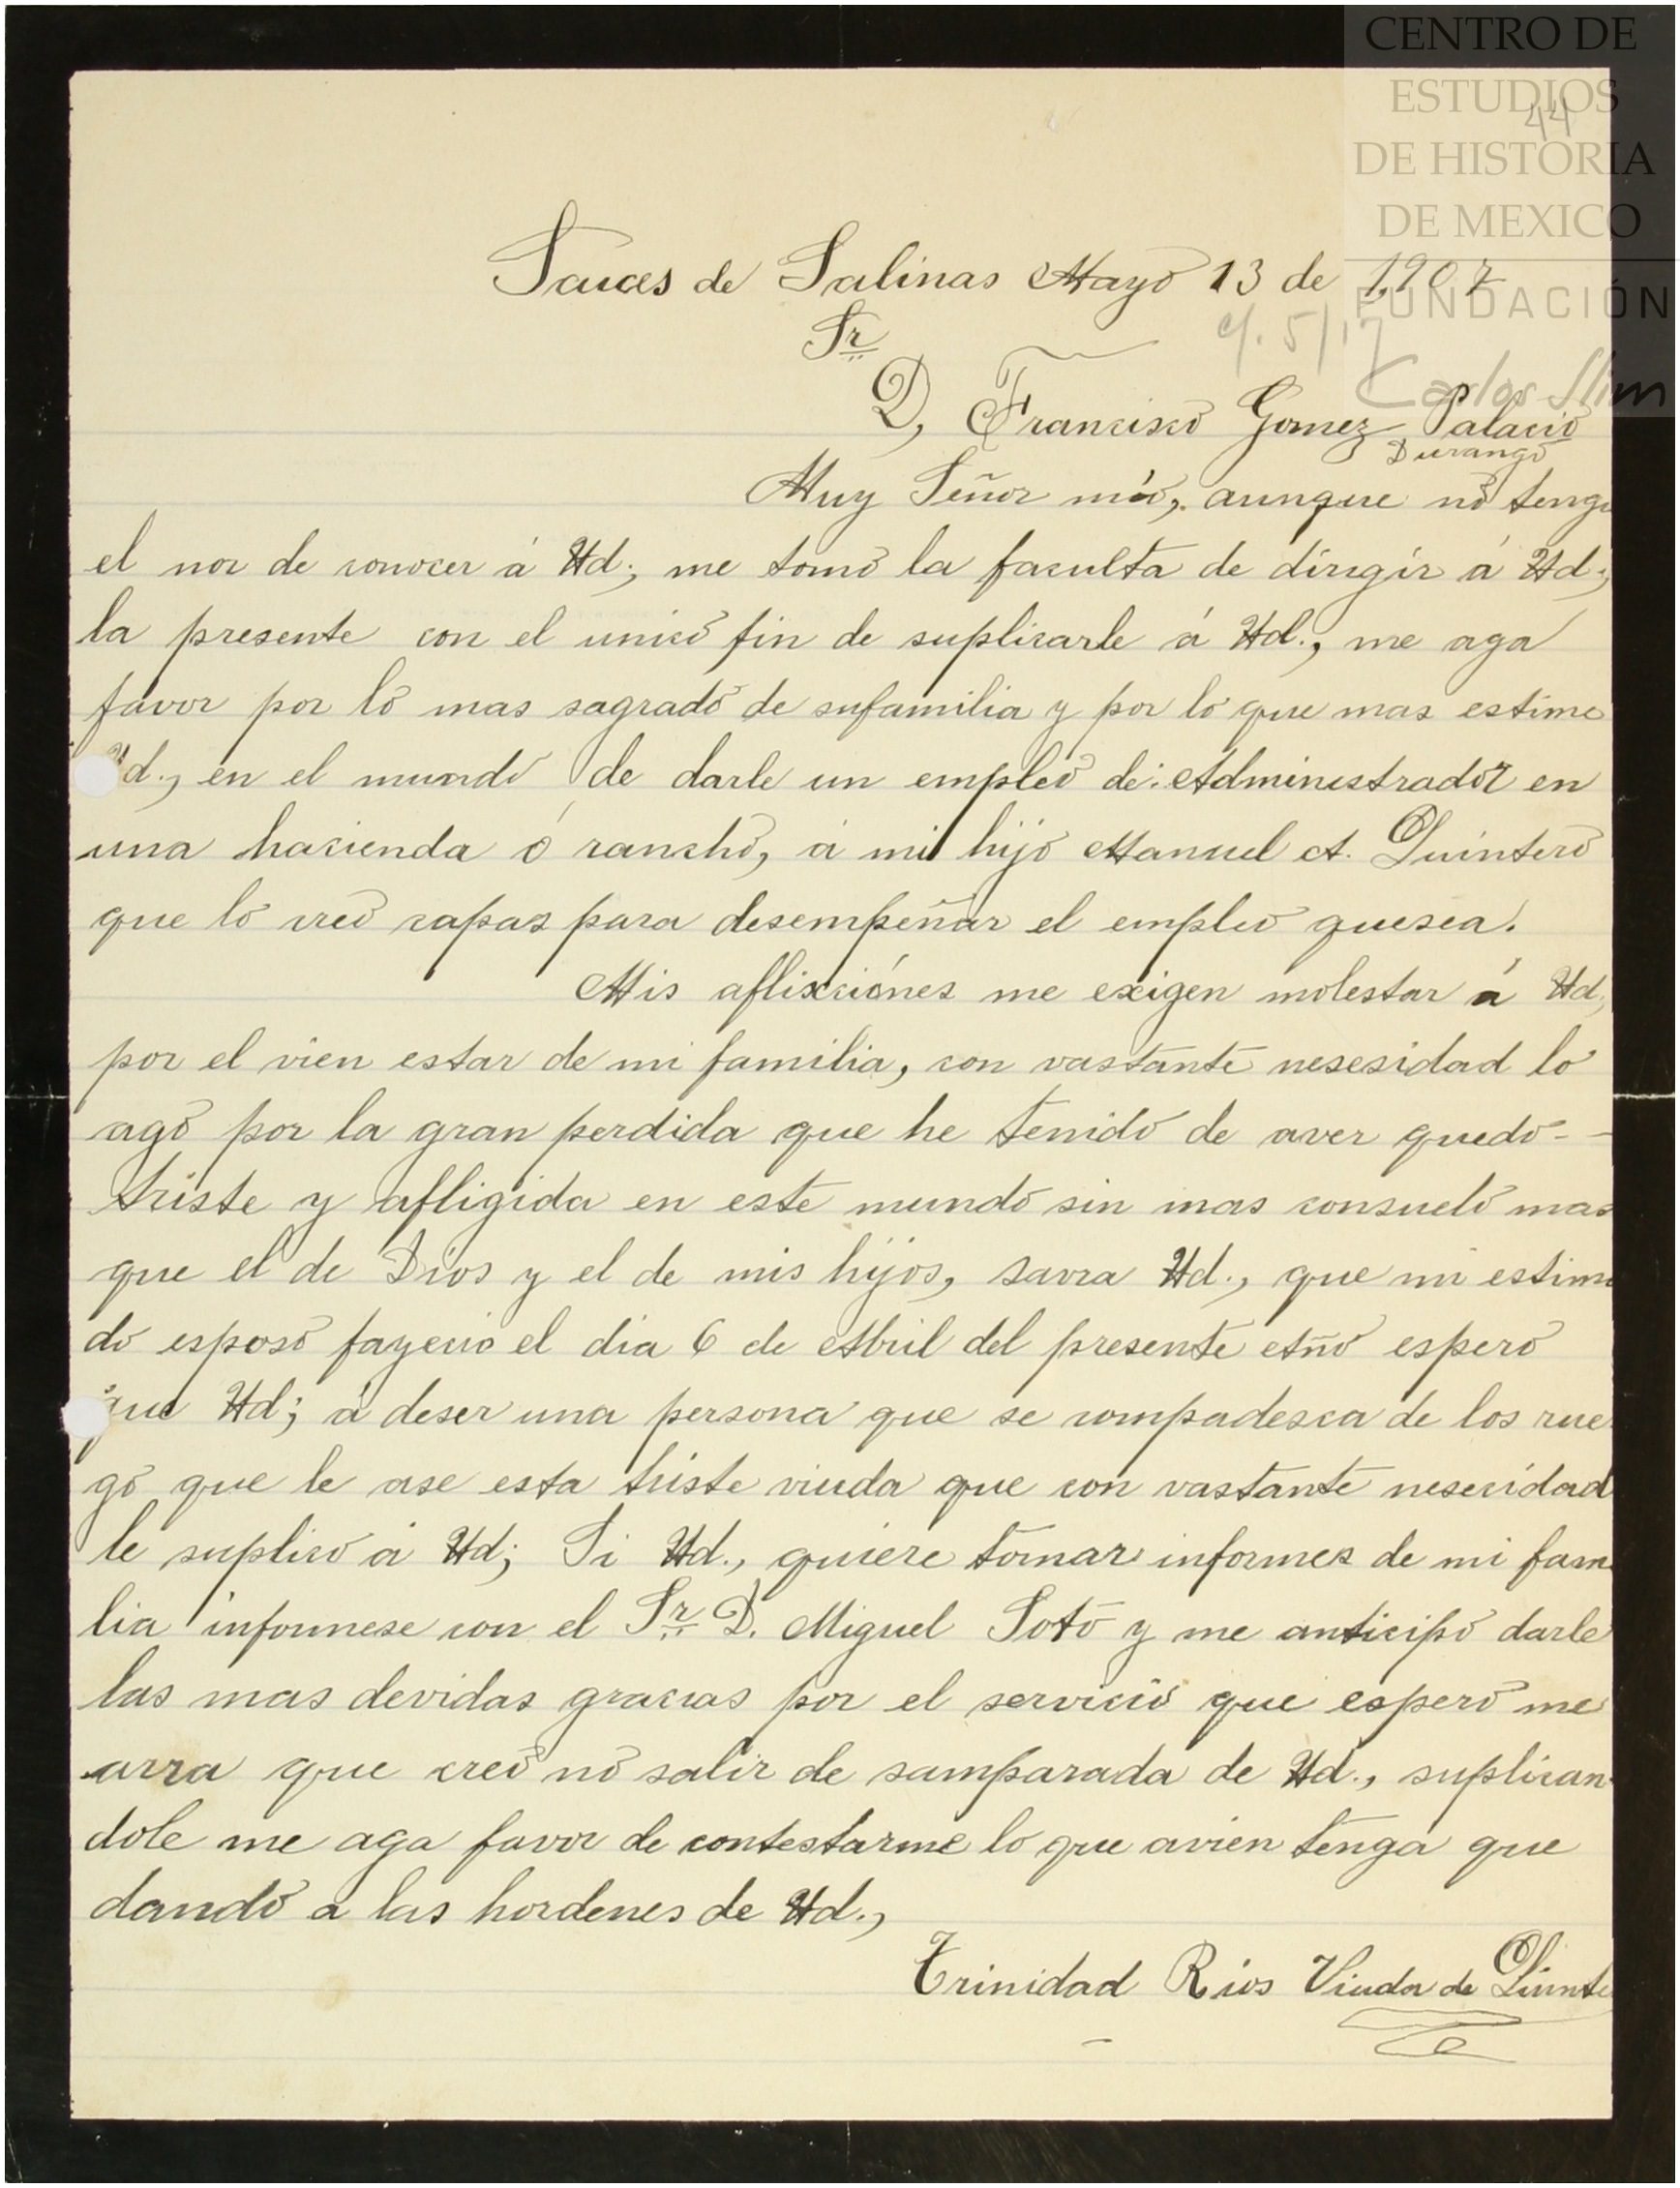 CENTRO DE
ESTUDIOS
44
DE HISTORIA
DE MEXICO
FUNDACIÓN
Carlos Slim
Sauces de Salinas Mayo 13 de 1,907
c/. 5/17
Sr.
D, Francisco Gomez Palacio
Durango
Muy Señor mío, aunque no tengo
el nor de conocer á Ud; me tomo la faculta de dirigir á Ud;
la presente con el unico fin de suplicarle á Ud., me aga
favor por lo mas sagrado de sufamilia y por lo que mas estime
Ud., en el mundo de darle un empleo de: Administrador en
una hacienda ó rancho, á mi hijo Manuel A. Quintero
que lo creo capas para desempeñar el empleo quesea.
Mis aflixciónes me exigen molestar á Ud,
por el vien estar de mi familia, con vastante nesesidad lo
ago por la gran perdida que he tenido de aver quedo-
triste y afligida en este mundo sin mas consuelo mas
que el de Dios y el de mis hijos, savra Ud., que mi estima
do esposo fayecio el dia 6 de Abril del presente Año espero
que Ud; á deser una persona que se compadesca de los rue
go que le ase esta triste viuda que con vastante nesecidad
le suplico á Ud; Si Ud., quiere tomar informes de mi fami
lia informese con el Sr. D. Miguel Soto y me anticipo darle
las mas devidas gracias por el servicio que espero me
arra que creo no salir de samparada de Ud., suplican
dole me aga favor de contestarme lo que avien tenga que
dando a las hordenes de Ud.,
Trinidad Rios Viuda de Quinte